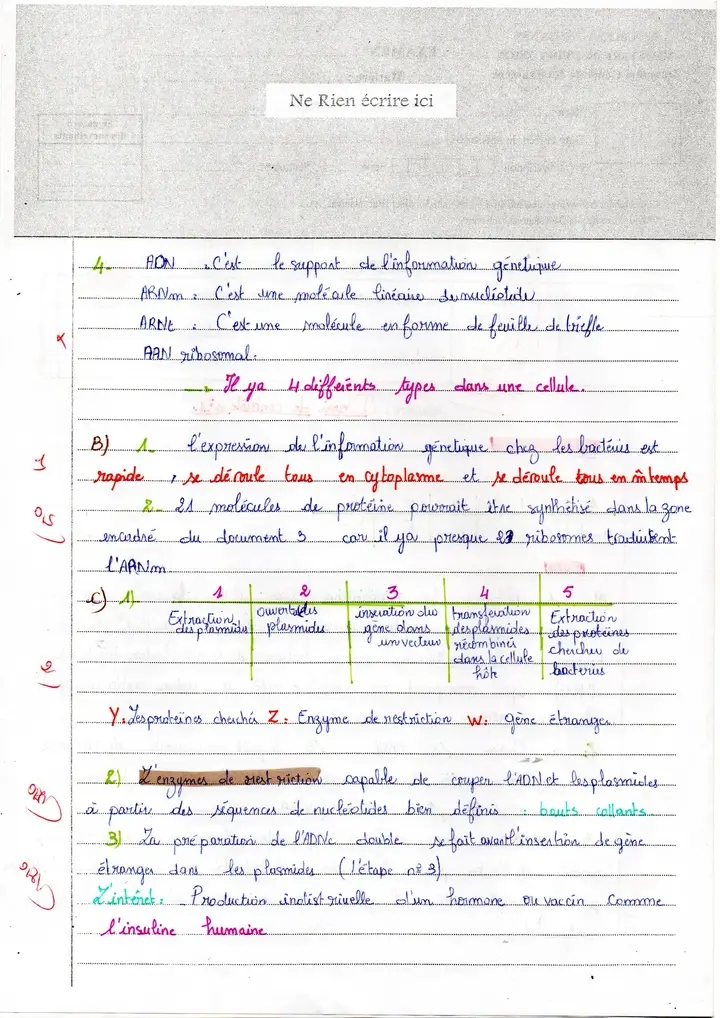 Ne Rien écrire ici
4- ADN : C'est le support de l'information génetique
ARNm : C'est une molécule linéaire de nucléotide
ARNt : C'est une molécule en forme de feuille de triefle
ARN ribosomal.
Il ya 4 différents types dans une cellule.
B) 1- l'expression de l'information génetique chez les bactéries est
rapide, se déroule tous en cytoplasme et se déroule tous en m̂ temps
1
2- 21 molécules de protéine pourrait être synthétisé dans la zone
0,5
encadré du document 3 car il ya presque ribosomes traduisent
l'ARNm
C) 1) 1 2 3 4 5
Extraction des plasmides
ouverture des plasmides
insération du gène dans un vecteur
transferation des plasmides recombinés dans la cellule hôte
Extraction des protéines chercher de bacteries
2
Y. Les proteines cherchés Z. Enzyme de restriction W. gène étranger
2) L'enzymes de restriction capable de couper l'ADN et les plasmides
à partir des séquences de nucléotides bien définis : bouts collants
3) La préparation de l'ADNc double se fait avant l'insertion de gène
étranger dans les plasmides (l'étape n° 3)
L'intérêt : Production indistriuelle d'un hormone ou vaccin Comme
l'insuline humaine